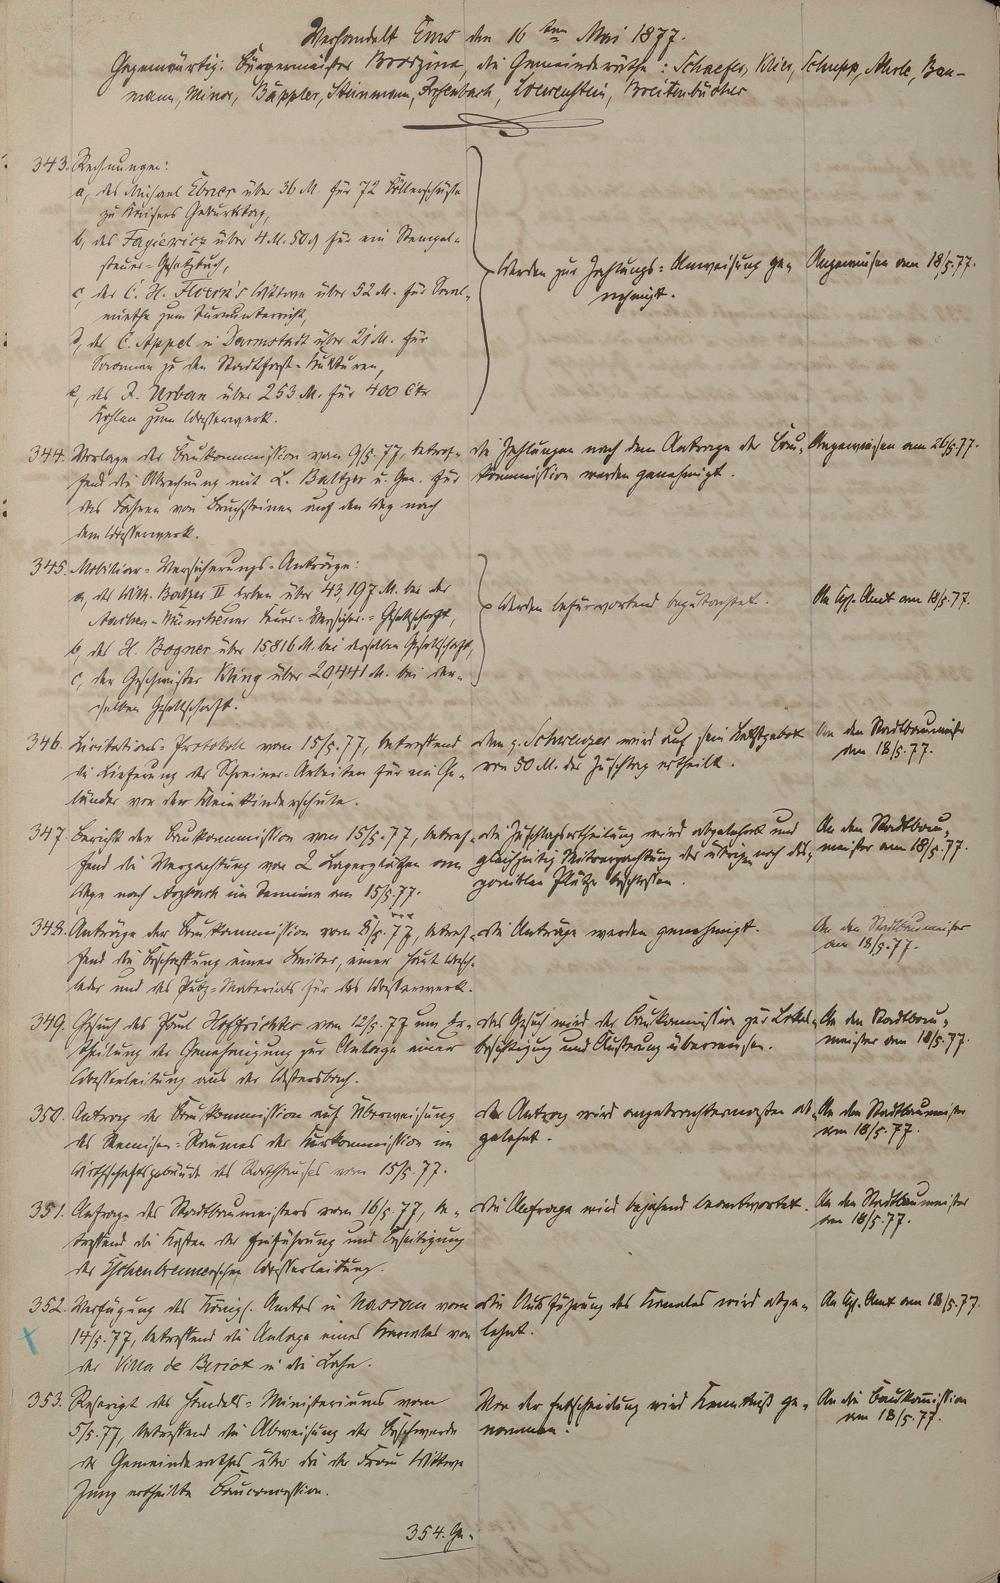 Verhandelt Ems den 16ten Mai 1877.
Gegenwärtig: Bürgermeister die Gemeinderäthe: Schaefer, Klier, Schupp, Bau-
mann, Minor, Bäppler, Steinmann, Loewenstein, Breitenbücher
343. Rechnungen:
a, des Ebner über 36 M. für 72 Böllerschüsse
zu Kaisers Geburtstag,
b, des über 4 M. 50 ₰ für ein Stempel-
steuer-Gesetzbuch,
c, der C. H. Wittwe über 52 M. für Saal-
miethe zum Turnunterricht,
d, des C. Appel in Darmstadt über 21 M. für
Saamen zu den Stadtforst-Kulturen,
e, des F. Urban über 253 M. für 400 Ctr
Kohlen zum Wasserwerk.
Werden zur Zahlungs-Anweisung ge-
nehmigt.
Angewiesen am 18/5.77.
344. Vorlage der Baukommission vom 9/5.77, betref-
fend die Abrechnung mit L. Baltzer u. Gen. für
das Fahren von Bruchsteinen auf den Weg nach
dem Wasserwerk.
die Zahlungen nach dem Antrage der Bau-
kommission werden genehmigt.
Angewiesen am 26/5.77.
345. Mobiliar-Versicherungs-Anträge:
a, der Wilh. Balzer II Erben über 43,197 M. bei der
Aachen-Münchener Feuer-Versicher.-Gesellschaft,
b, des H. Bogner über 15816 M. bei derselben Gesellschaft,
c, der Geschwister Kling über 20,441 M. bei der-
selben Gesellschaft.
Werden befürwortend begutachtet.
An Kgl. Amt am 18/5.77.
346. Licitations-Protokoll vom 15/5.77, betreffend
die Lieferung der Schreiner-Arbeiten für ein Ge-
länder vor der Kleinkinderschule.
dem p. Schweuzer wird auf sein Letztgebot
von 50 M. der Zuschlag ertheilt.
An den Stadtbaumeister
am 18/5.77.
347. Bericht der Baukommission vom 15/5.77, betref-
fend die Verpachtung von 2 Lagerplätzen am
Wege nach Arzbach im Termine am 15/5.77.
die Zuschlagsertheilung wird abgelehnt und
gleichzeitig Mitverpachtung der übrigen noch dis-
poniblen Plätze beschlossen.
An den Stadtbau-
meister am 18/5.77.
348. Anträge der Baukommission vom 8/5.77, betref-
fend die Beschaffung einer Leiter, einer Haut Wasch-
leder und des Putz-Materials für das Wasserwerk.
die Anträge werden genehmigt.
An den Stadtbaumeister
am 18/5.77.
349. Gesuch des Paul Hoffrichter vom 12/5.77 um Er-
theilung der Genehmigung zur Anlage einer
Wasserleitung aus der
das Gesuch wird der Baukommission zur Lokal-
besichtigung und Äußerung überwiesen.
An den Stadtbau-
meister am 18/5.77.
350. Antrag der Baukommission auf Überweisung
des Remisen-Raumes der Kurkommission im
Wirthschaftsgebäude des Rathhauses vom 15/5.77.
der Antrag wird angebrachtermaßen ab-
gelehnt.
An den Stadtbaumeister
am 18/5.77.
351. Anfrage des Stadtbaumeisters vom 16/5.77, be-
treffend die Kosten der Zuführung und Beseitigung
der Wasserleitung.
die Anfrage wird bejahend beantwortet.
An den Stadtbaumeister
am 18/5.77.
352. Verfügung des Königl. Amtes in Nassau vom
14/5.77, betreffend die Anlage eines Kanales von
der Villa de Beriot in die Lahn.
die Ausführung des Kanales wird abge-
lehnt.
An Kgl. Amt am 18/5.77.
353. Rescript des Handels-Ministeriums vom
5/5.77, betreffend die Abweisung der Beschwerde
des Gemeinderathes über die der Frau Wittwe
Jung ertheilte Bauconcession.
Von der Entscheidung wird Kenntniß ge-
nommen.
An die Baukommission
am 18/5.77.
354. Ge-